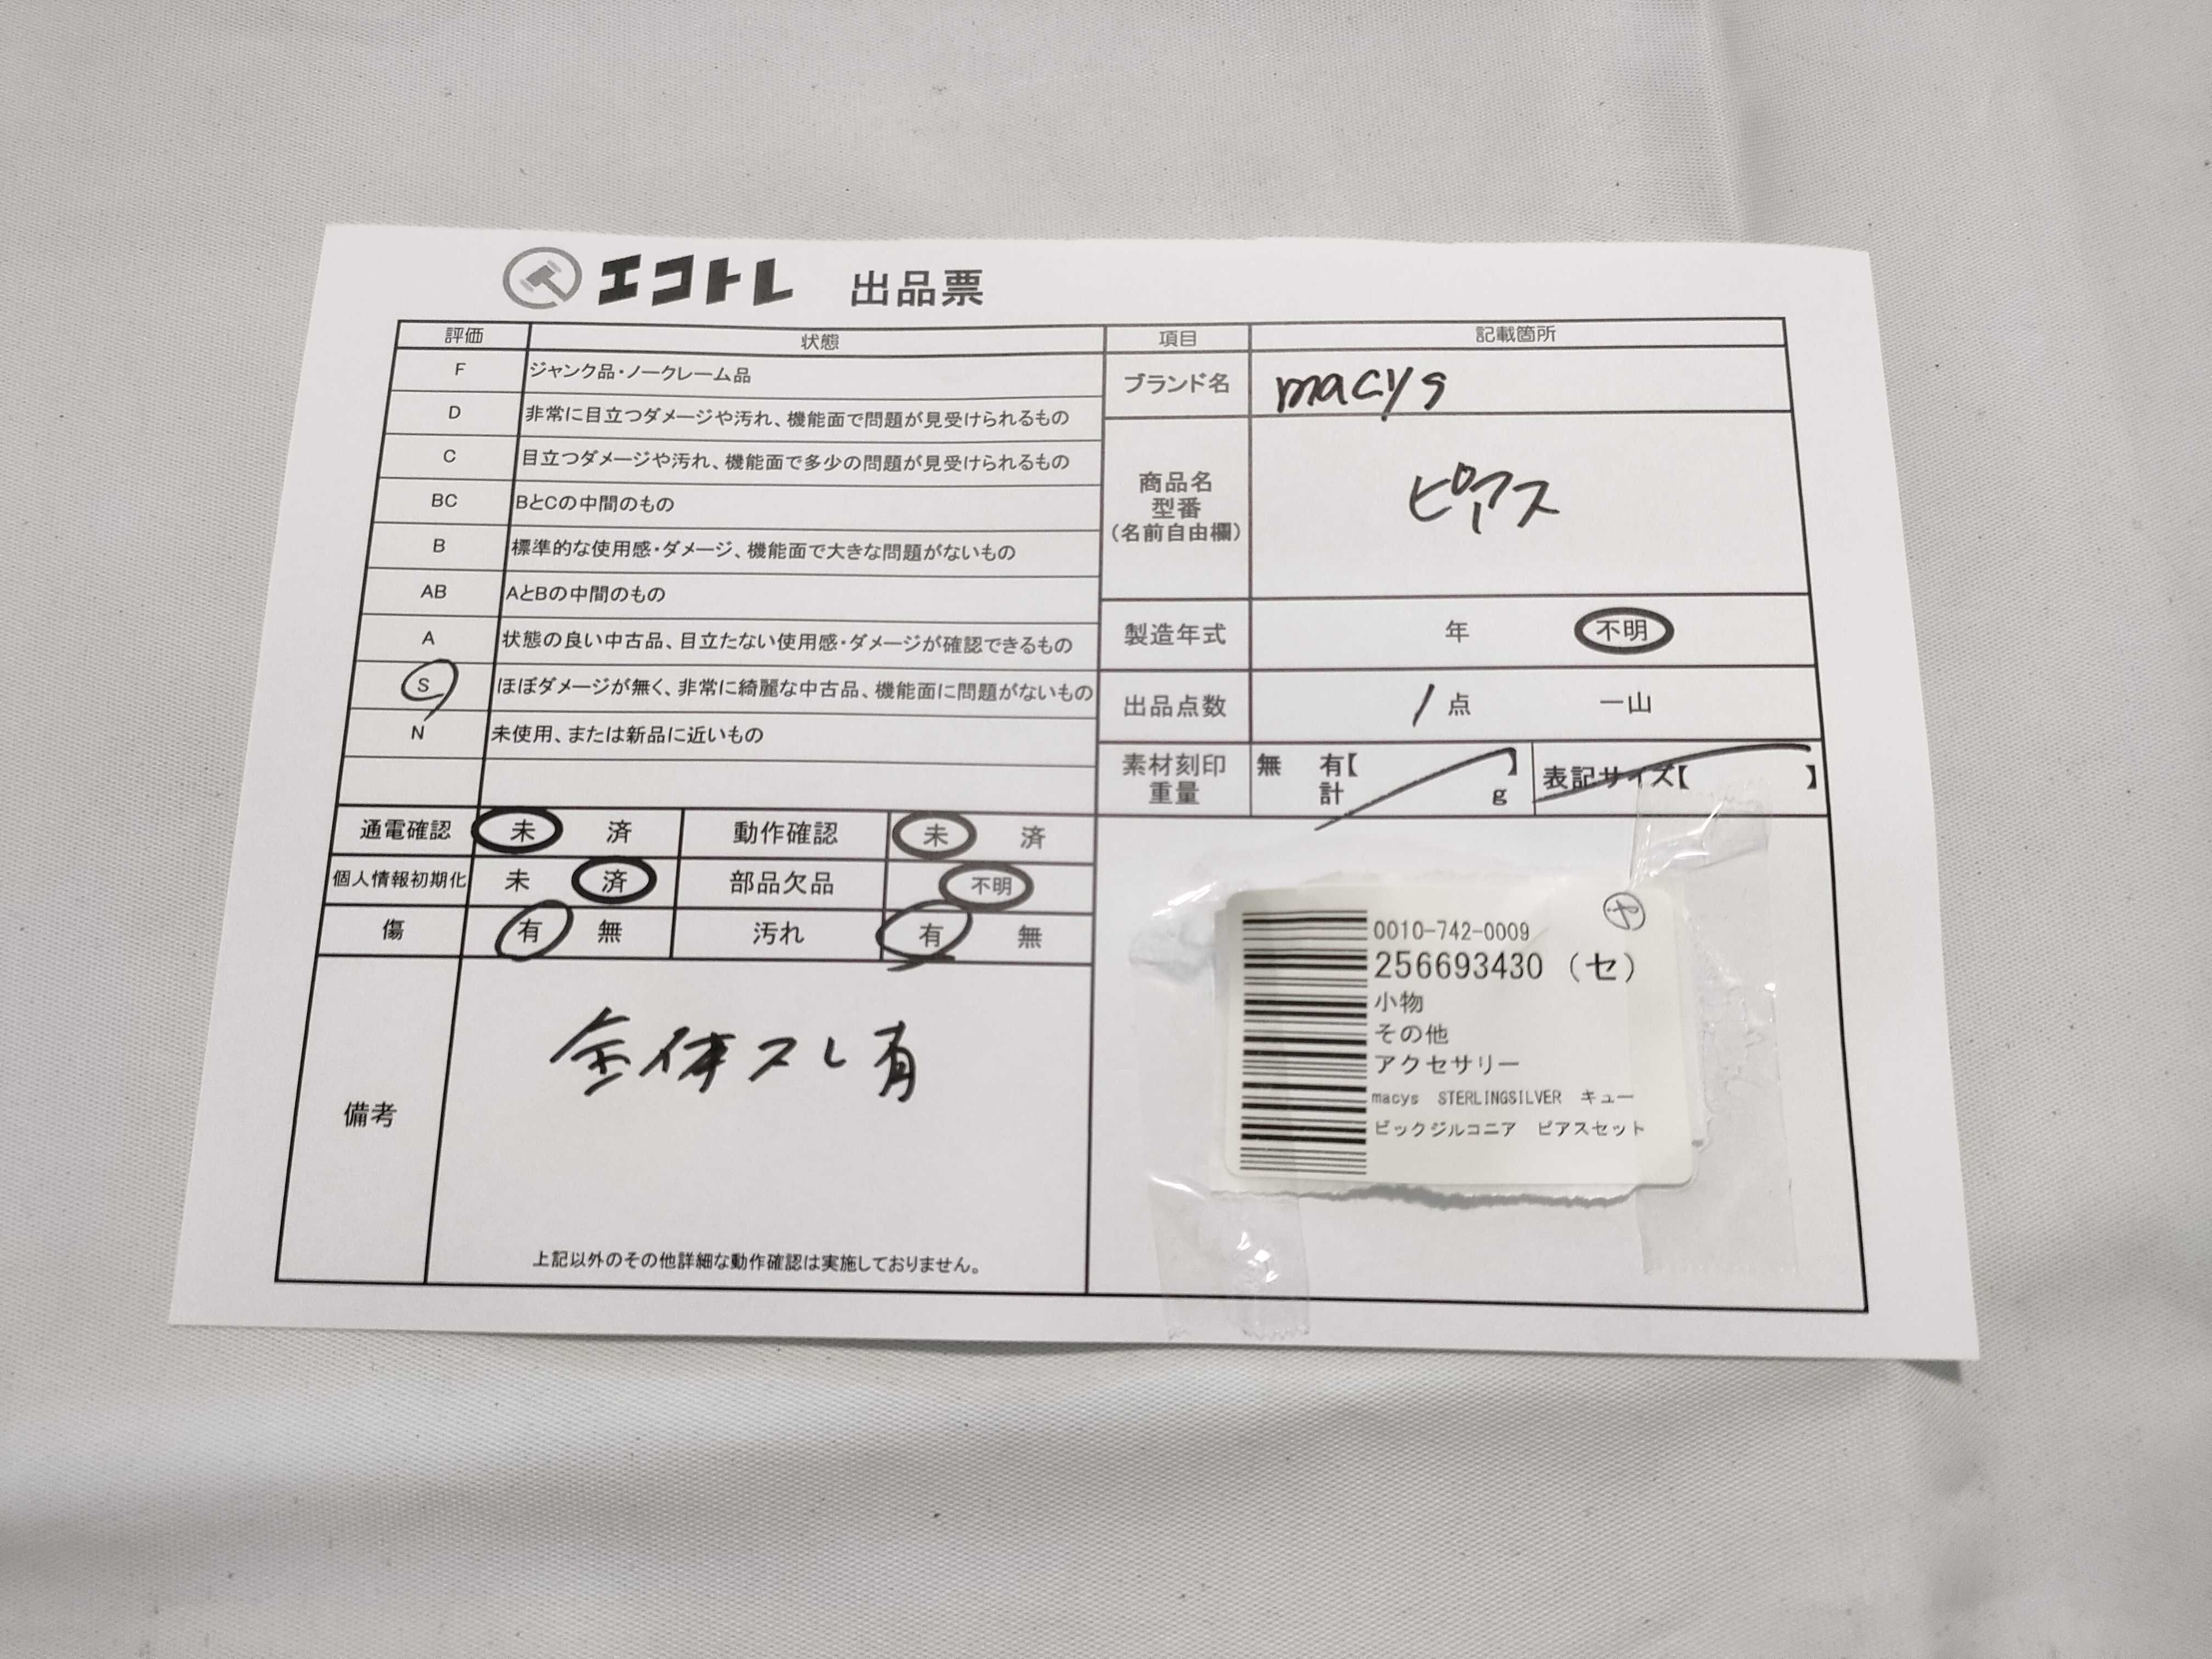 エコトレ 出品票
評価 状態
F ジャンク品・ノークレーム品
D 非常に目立つダメージや汚れ、機能面で問題が見受けられるもの
C 目立つダメージや汚れ、機能面で多少の問題が見受けられるもの
BC BとCの中間のもの
B 標準的な使用感・ダメージ、機能面で大きな問題がないもの
AB AとBの中間のもの
A 状態の良い中古品、目立たない使用感・ダメージが確認できるもの
S ほぼダメージが無く、非常に綺麗な中古品、機能面に問題がないもの
N 未使用、または新品に近いもの
項目 記載箇所
ブランド名 macys
商品名
型番
(名前自由欄)
ピアス
製造年式 年 不明
出品点数 1 点 一山
素材刻印 無 有【 】
重量 計 g
表記サイズ【 】
通電確認 未 済 動作確認 未 済
個人情報初期化 未 済 部品欠品 不明
傷 有 無 汚れ 有 無
備考
全体スレ有
上記以外のその他詳細な動作確認は実施しておりません。
ヤ
0010-742-0009
256693430 (セ)
小物
その他
アクセサリー
macys STERLINGSILVER キュー
ビックジルコニア ピアスセット